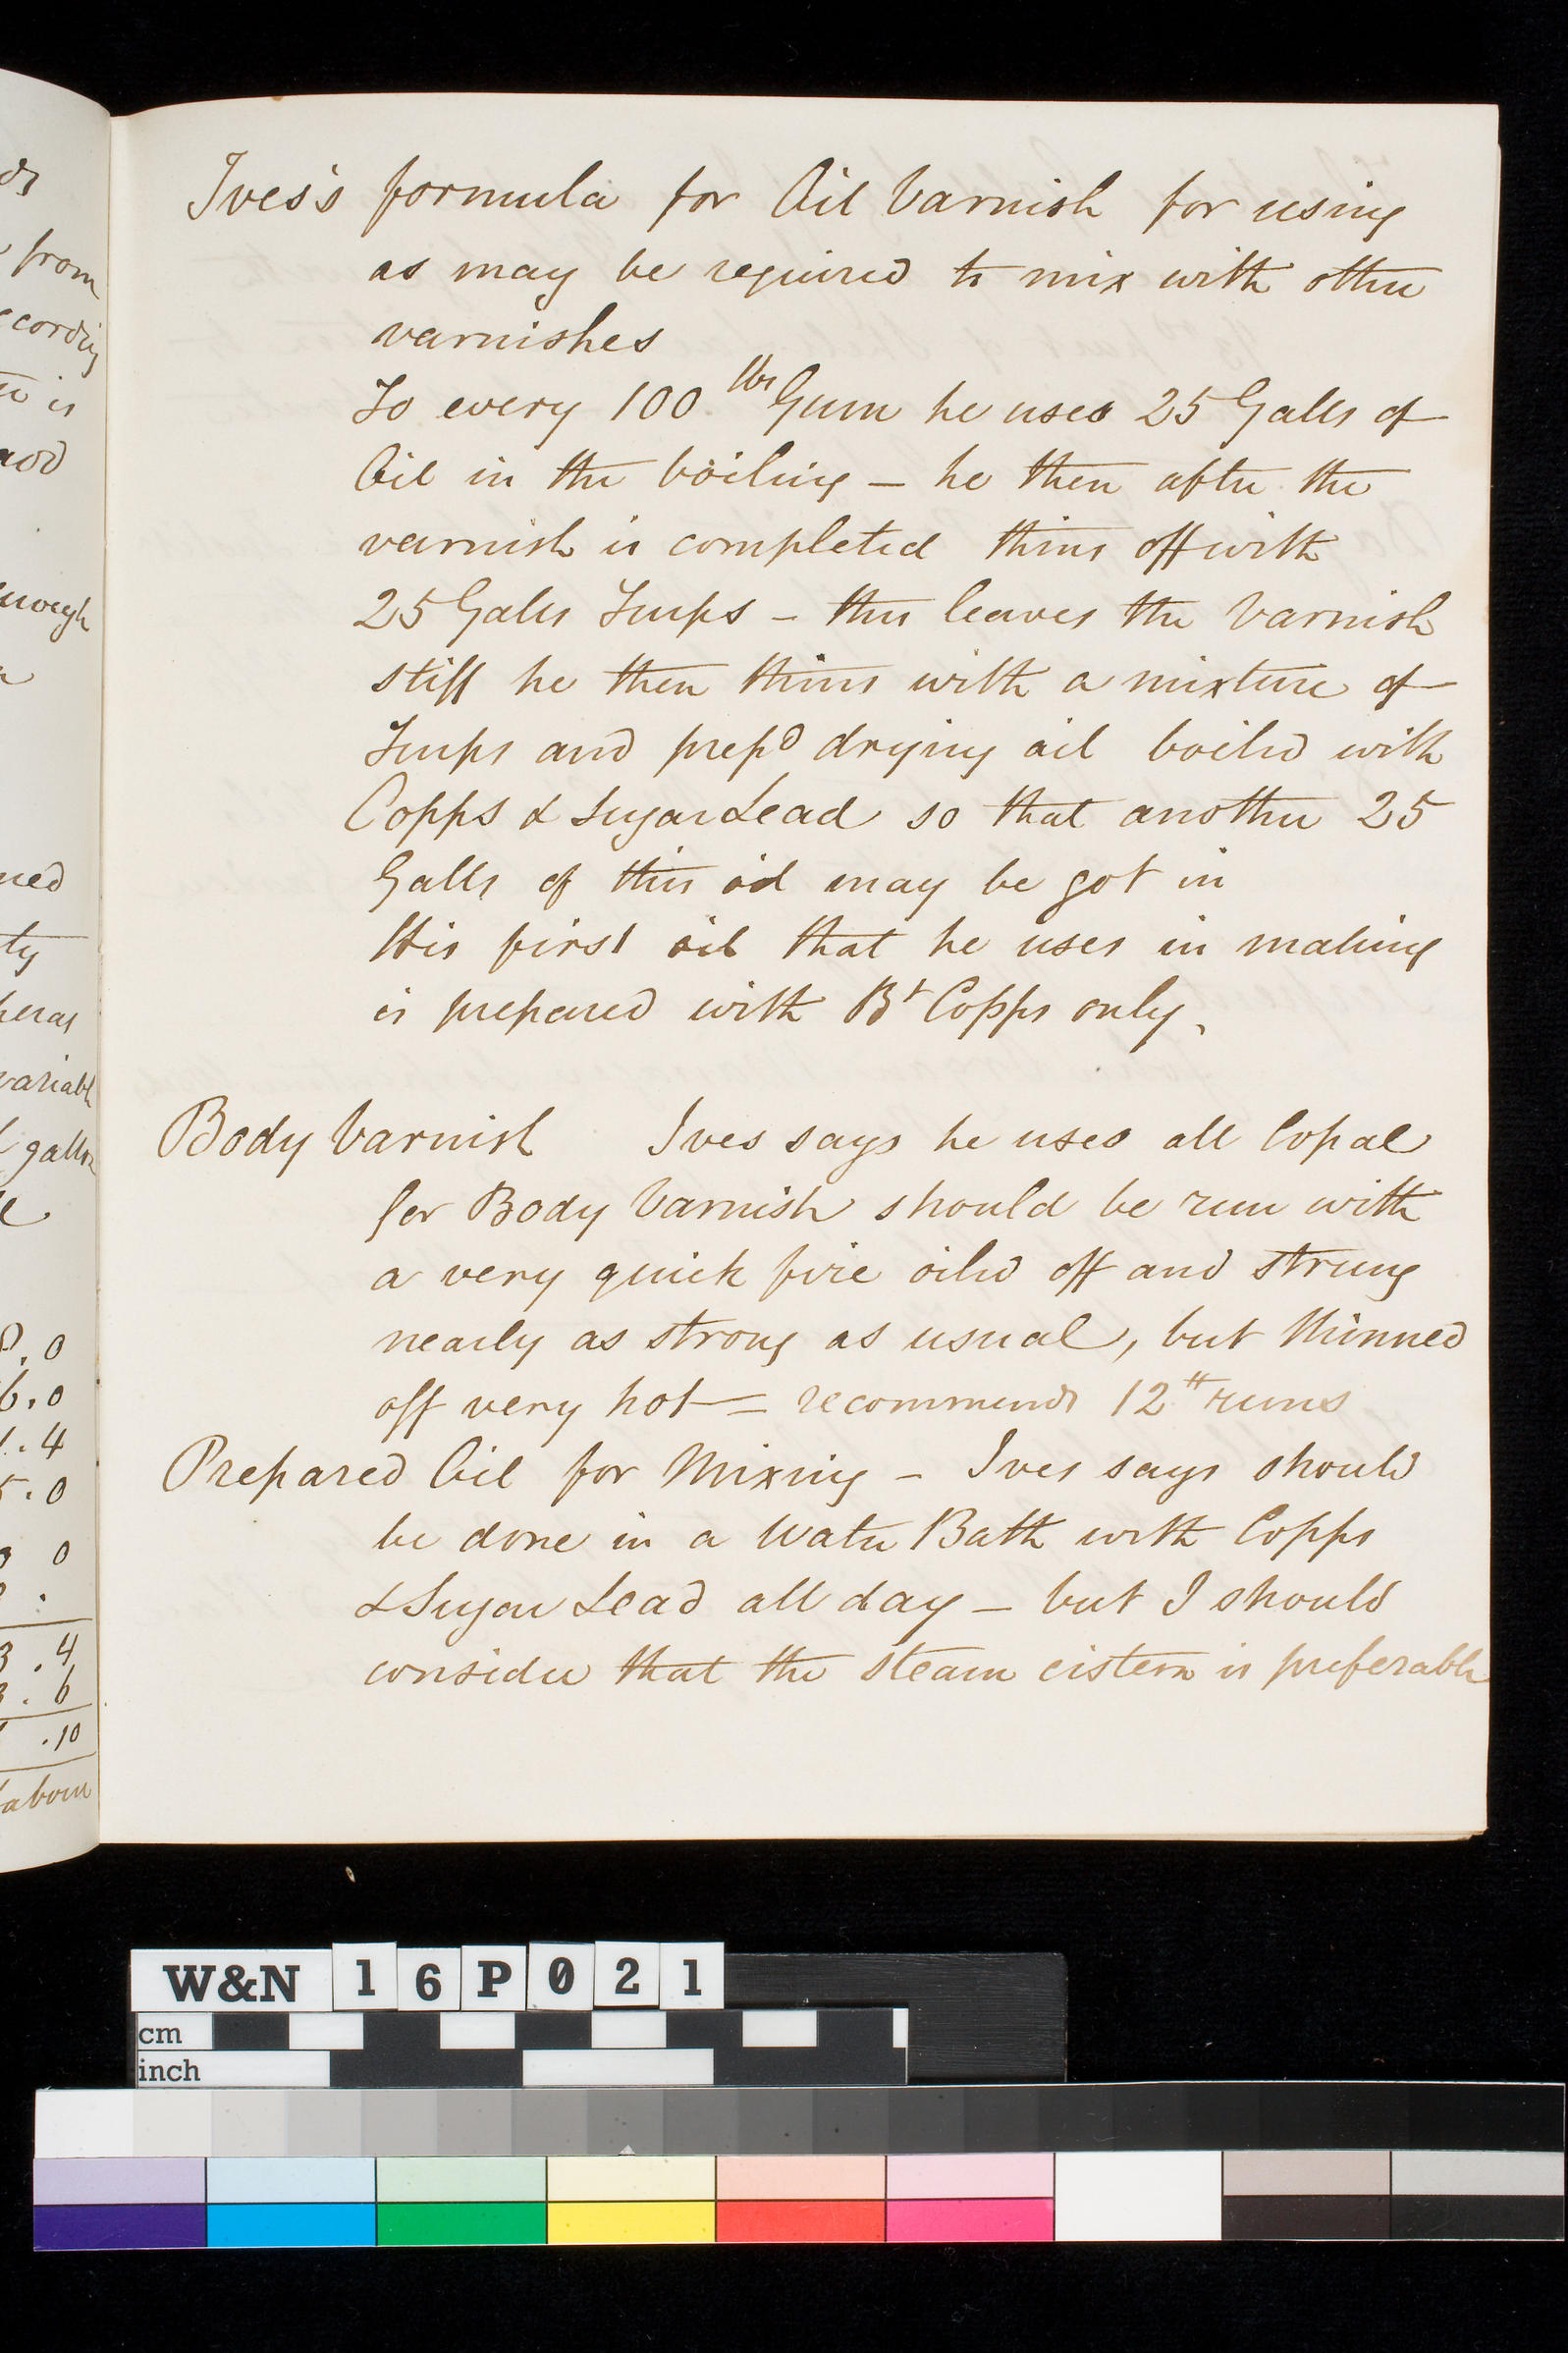 Ives's formula for Oil Varnish for using
as may be required to mix with other
varnishes
To every 100 lbs Gum he uses 25 Galls of
Oil in the boiling — he then after the
varnish is completed thins off with
25 Galls Turps – this leaves the Varnish
stiff he then thins with a mixture of
Turps and prepd drying oil boiled with
Copps & Sugar Lead so that another 25
Galls of this oil may be got in
His first oil that he uses in making
is prepared with Bt Copps only.
Body Varnish Ives says he uses all Copal
for Body Varnish should be run with
a very quick fire oiled off and strung
nearly as strong as usual, but thinned
off very hot = recommends 12 lb runs
Prepared Oil for Mixing – Ives says should
be done in a Water Bath with Copps
& Sugar Lead all day — but I should
consider that the steam cistern is preferable
from
ty
8.0
6.0
.4
5.0
0
3.4
3.6
.10
W&N 16P021
cm
inch